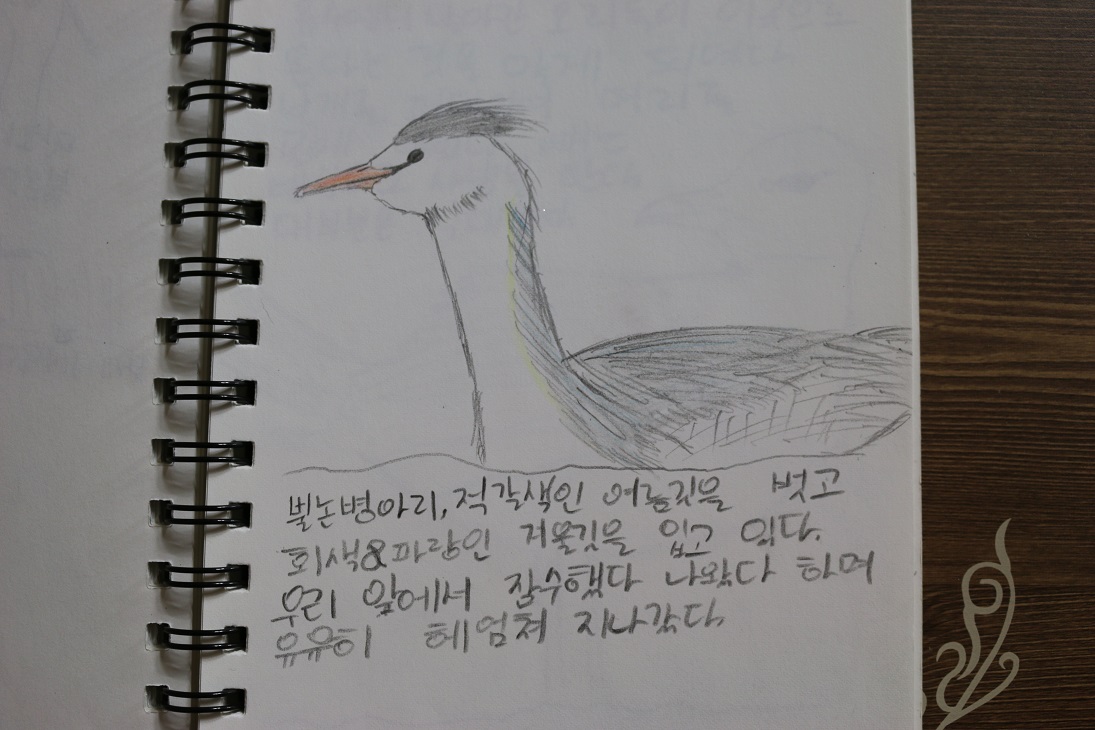 뿔논병아리, 적갈색인 여름깃을 벗고
회색&파랑인 겨울깃을 입고 있다.
우리 앞에서 잠수했다 나왔다 하며
유유히 헤엄쳐 지나갔다.